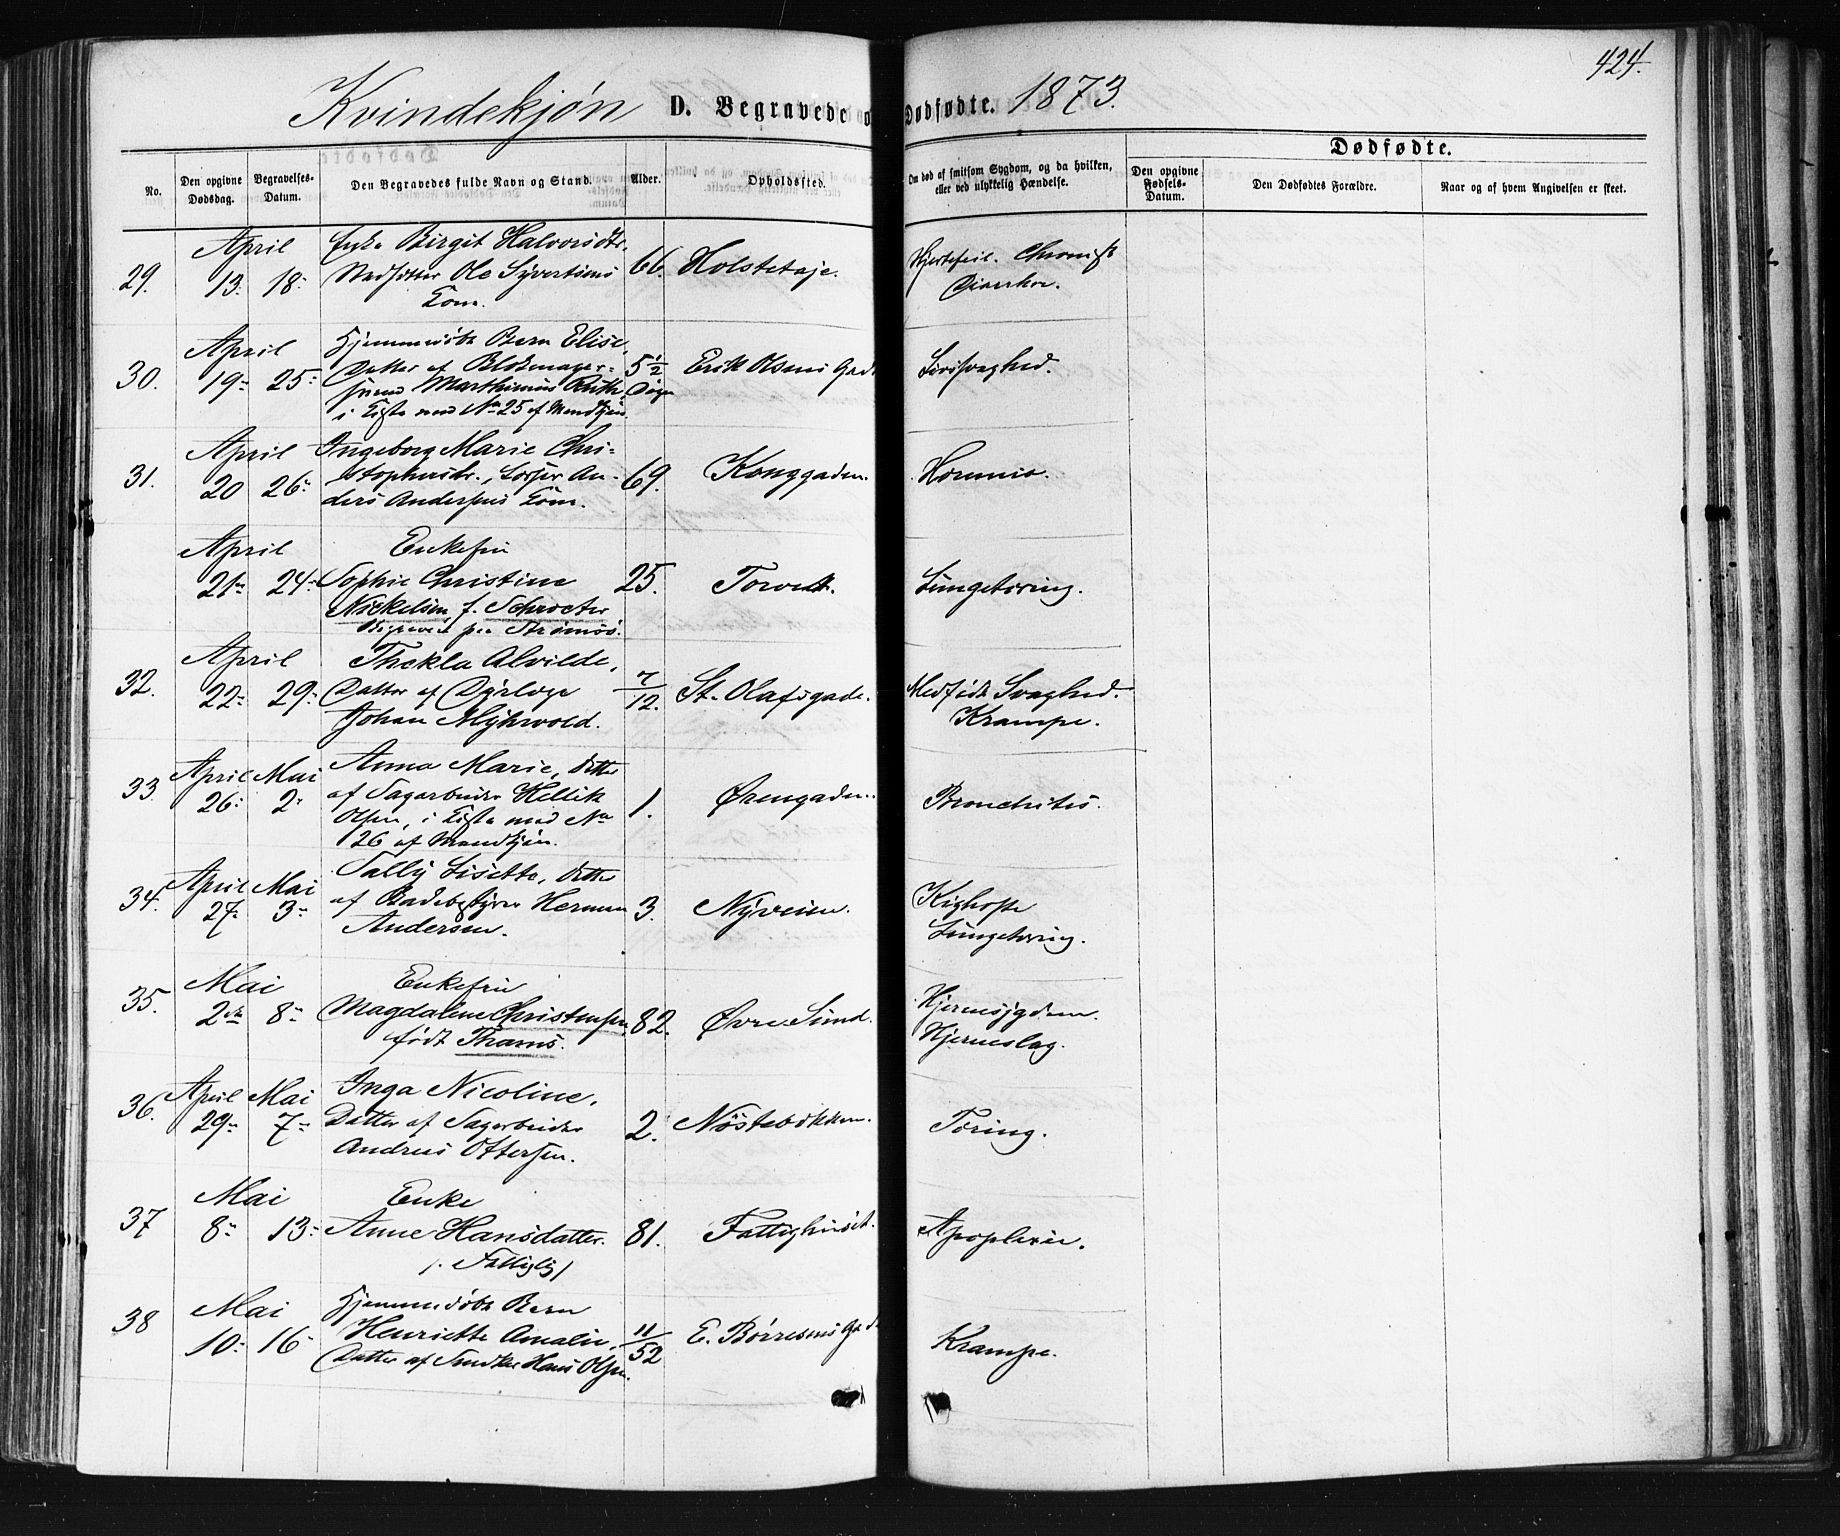 424.
Kvindekjøn D. Begravede o Dødfødte. 1873.
Dødfødte.
No.
Den opgivne Dødsdag.
Begravelses-Datum.
Den Begravedes fulde Navn og Stand.
Alder.
Opholdssted.
Om død af smitsom Sygdom, og da hvilken, eller ved ulykkelig Hændelse.
Den opgivne Fødsels-Datum.
Den Dødfødtes Forældre.
Naar og af hvem Angivelsen er skeet.
April Enke Birgit Halvorsdtr.
29. 13. 18. Ole Syvertsens 66. Holstetaje. Hjertefeil. Chronisk
Kone. Diarrhoe.
April Hjemmedøbt Barn Elise,
30. 19. 25. Datter af Blokmager- 5 1/2 Døgn Erik Olsens Gad Livssvaghed.
svend Marthinius Ruth,
i Kiste med No 25 af Mandkjøn.
April Ingeborg Marie Chri-
31. 20 26. stophersdr., An- 69. Konggaden.
ders Andersens Kone.
April Enkefru
21. 24. Sophie Christine 25. Torvet. Lungetæring.
Nickelsen f. Schroeter
Begravet paa Strømsø.
April Thekla Alvilde,
32. 22. 29. Datter af Dyrlæge 7/12. St. Olafsgade. Medfødt Svaghed.
Johan Myhrvold. Krampe.
April Mai Anna Marie, Datter
33. 26. 2. af Sagarbeider Hellik 1. Ørengaden. Bronchites.
Olsen, i Kiste med No
26 af Mandkjøn.
April Mai Sally Lisette, Datter
34. 27. 3. af Badebestyrer Herman 3. Nyveien. Kighoste
Andersen. Lungetæring.
Mai Enkefru
35. 2. 8. Magdalene Christensen 82. Øvre Sund. Hjernesygdom.
født Thams. Hjerneslag.
April Mai Inga Nicoline,
36. 29. 7. Datter af Sagarbeider 2. Nøstebakken. Tæring.
Andreas Ottersen.
Mai Enke
37 8. 13. Anne Hansdatter. 81. Fattighuset. Apoplexie.
/: Fattiglig /
Mai Hjemmedøbt Barn
38 10. 16 Henriette Amalie, 11/52 E. Børresens Gad Krampe.
Datter af Snedker Hans Olsen.